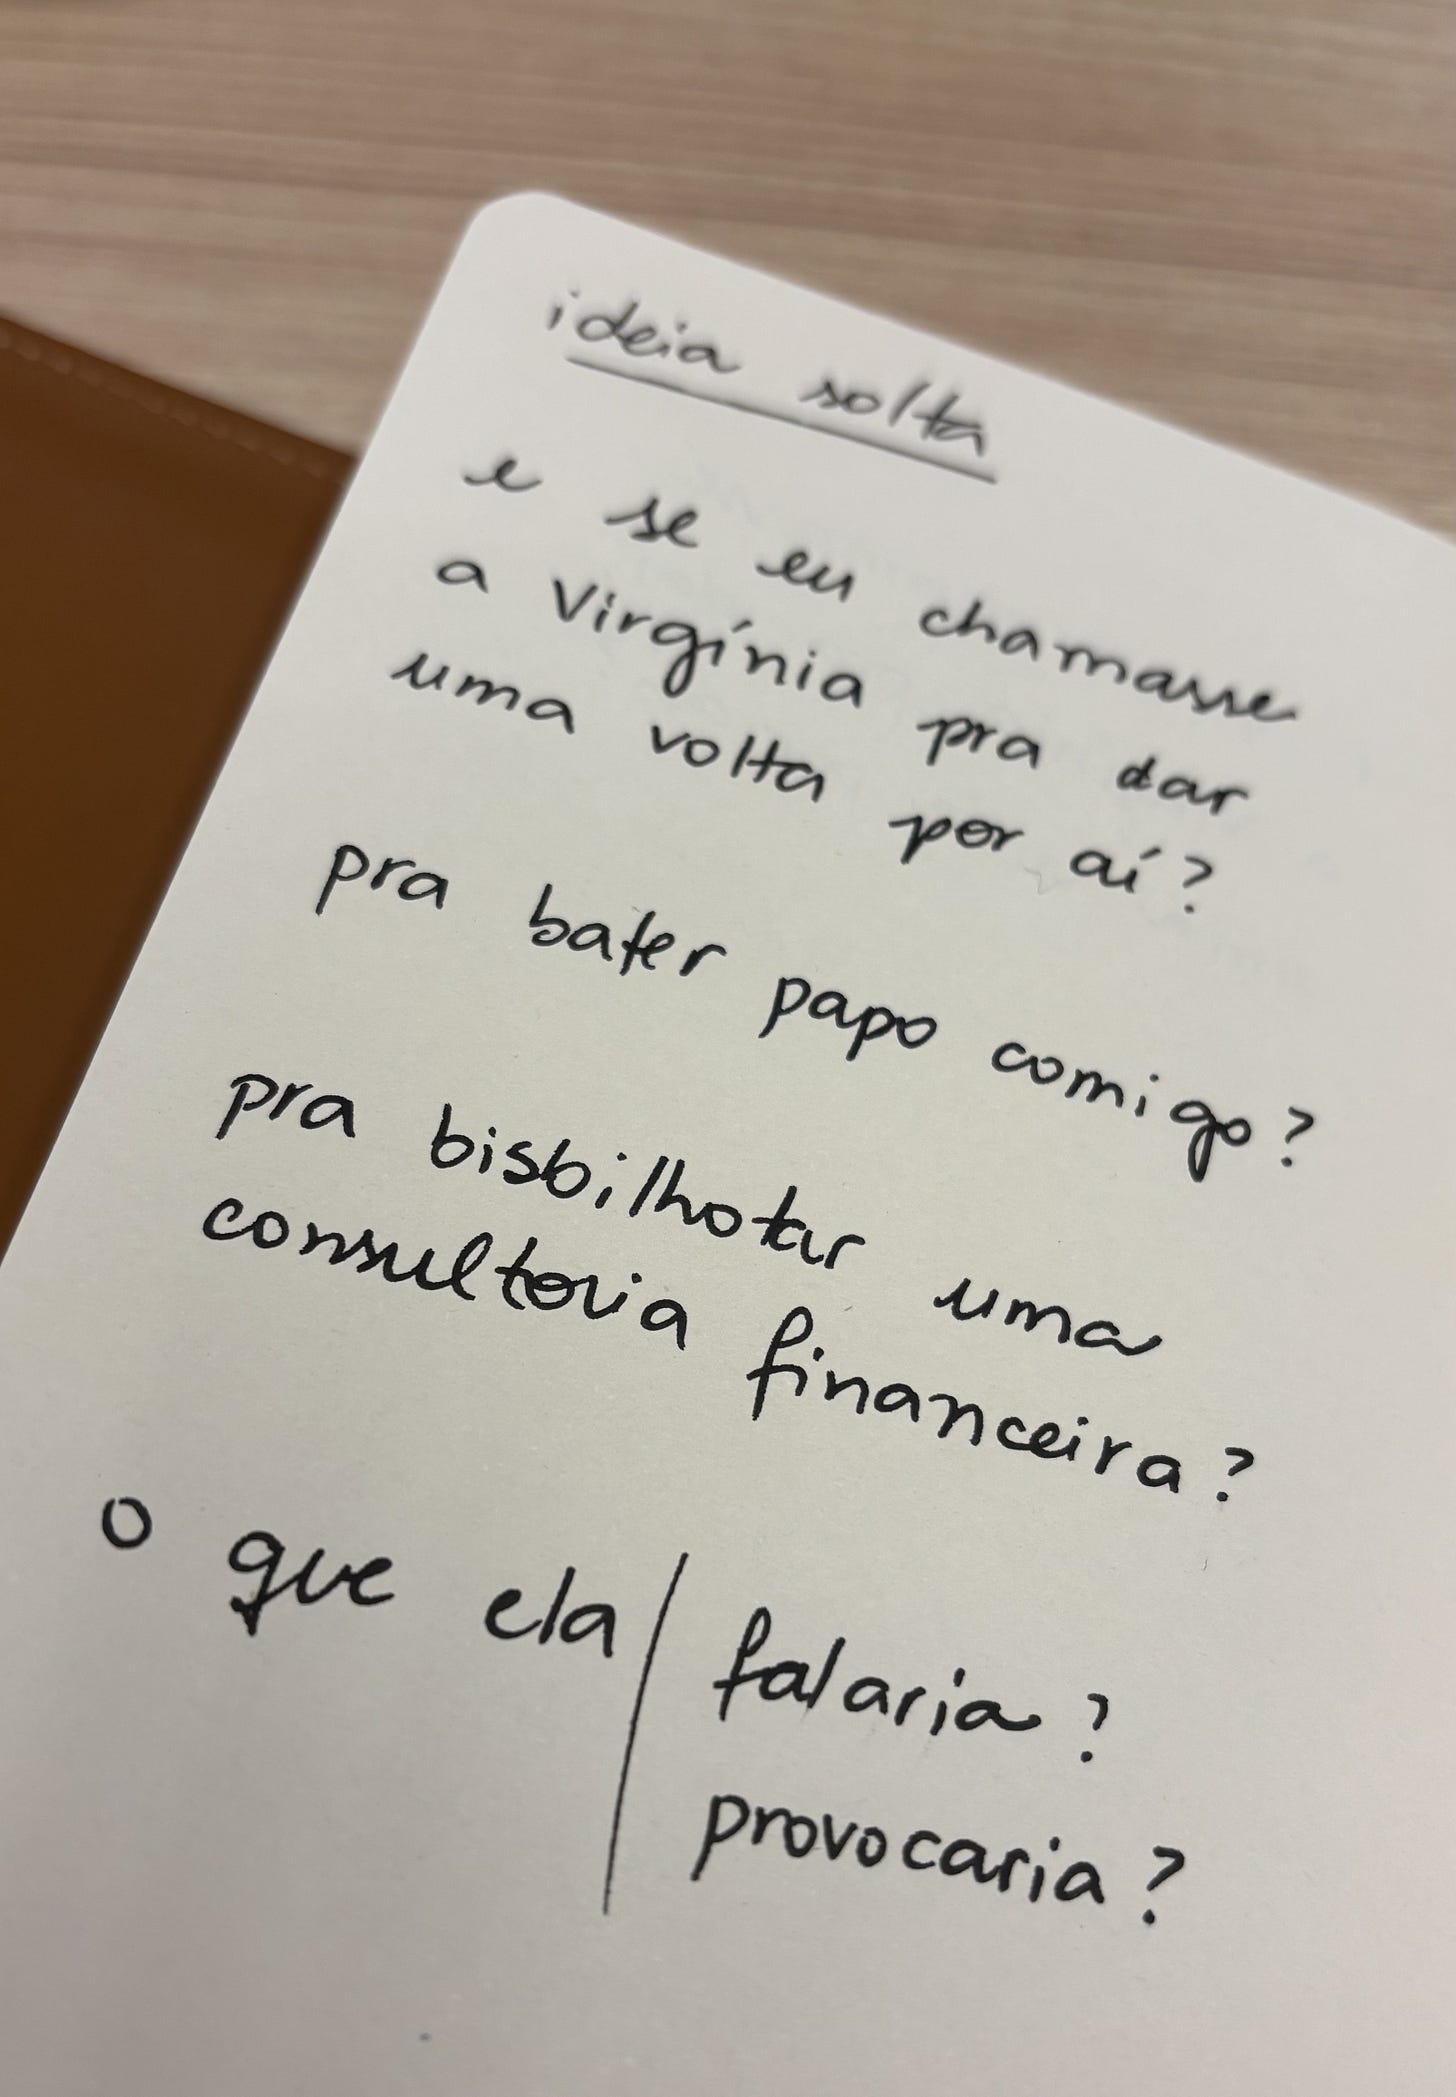 ideia solta
e se eu chamasse
a Virgínia pra dar
uma volta por aí?
pra bater papo comigo?
pra bisbilhotar uma
consultoria financeira?
o que ela falaria?
provocaria?